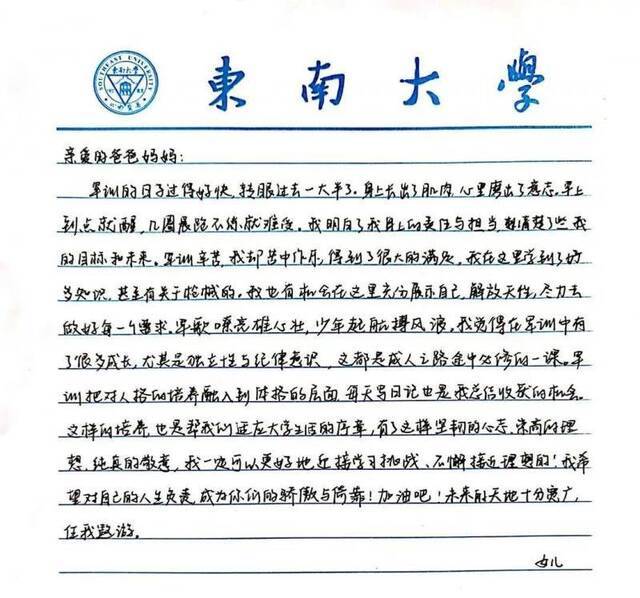 SOUTHEAST UNIVERSITY
東南大學
東南大學
亲爱的爸爸妈妈：
军训的日子过得好快，转眼过去一大半了。身上长出了肌肉，心里磨出了意志。早上
到点就醒，几圈晨跑不练就难受。我明白了我身上的责任与担当，想清楚了些我
的目标和未来。军训辛苦，我却苦中作乐，得到了很大的满足，我在这里学到了好
多知识，甚至有关于枪械的。我也有机会在这里充分展示自己，解放天性，尽力去
做好每一个要求。军歌嘹亮雄心壮，少年起航搏风浪。我觉得在军训中有
了很多成长，尤其是独立性与纪律意识，这都是成人之路途中必修的一课。军
训把对人格的培养融入到体格的层面，每天写日记也是我总结收获的机会。
这样的培养，也是帮我们适应大学生活的序章，有了这样坚韧的心志，崇高的理
想，纯真的敬意，我一定可以更好地迎接学习挑战、不懈接近理想的！我希
望对自己的人生负责，成为你们的骄傲与倚靠！加油吧！未来的天地十分宽广，
任我遨游。
女儿